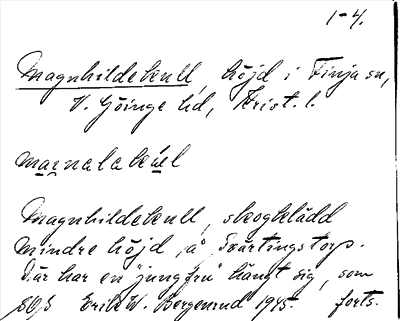 1-4.
Magnhildekull, höjd i Finja sn,
V. Göinge hd, Krist. l.
maṛnalakul
Magnhildekull, skogklädd
mindre höjd på Svartingstorp.
Där har en "jungfru" hängt sig, som
SOS Erik W. Bergenrud 1945. forts.